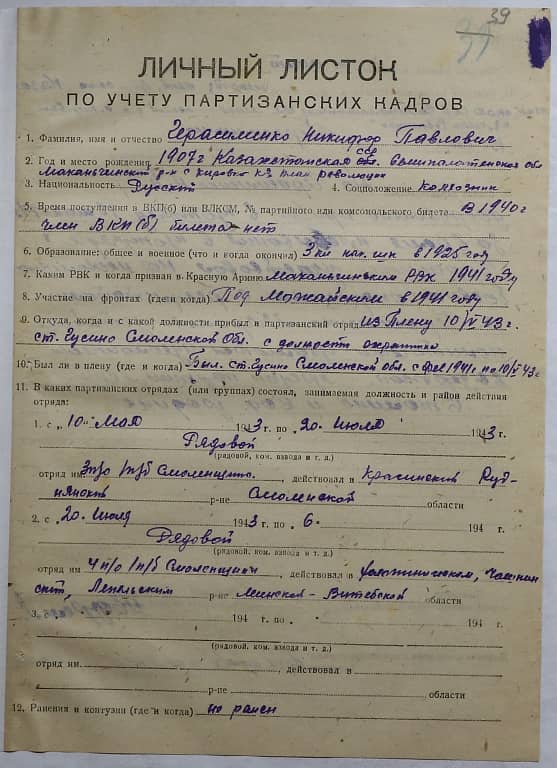 39
39
ЛИЧНЫЙ ЛИСТОК
ПО УЧЕТУ ПАРТИЗАНСКИХ КАДРОВ
1. Фамилия, имя и отчество Герасименко Никифор Павлович
2. Год и место рождения 1907 г Казахстанская ССР Семипалатенская обл
Маканчинский р-н с кирово кз план революции
3. Национальность Русский 4. Соцположение Колхозник
5. Время поступления в ВКП(б) или ВЛКСМ, № партийного или комсомольского билета В 1940 г
член ВКП(б) билета нет
6. Образование: общее и военное (что и когда окончил) 3 кл нач. шк в 1925 году
7. Каким РВК и когда призван в Красную Армию Маканчинским РВК 1941 году
8. Участие на фронтах (где и когда) Под Можайском в 1941 году
9. Откуда, когда и с какой должности прибыл в партизанский отряд из Плену 10/V 43 г.
ст. Гусино Смоленской Обл. с должности охранника
10. Был ли в плену (где и когда) Был. ст. Гусино Смоленской обл. с 1941 г по 10/V 43 г
11. В каких партизанских отрядах (или группах) состоял, занимаемая должность и район действия
отряда:
1. с „10" Мая 1943 г. по „20" Июля 1943 г.
Рядовой
(рядовой, ком. взвода и т. д.)
отряд им. 3 п/о 1 п/б Смоленщины, действовал в Краснинский Руд-
нянский р-не Смоленской области
2. с „20" Июля 1943 г. по „6" 194 г.
Рядовой
(рядовой, ком. взвода и т. д.)
отряд им 4 п/о 1 п/б Смоленщины, действовал в Чашник
ский, Лепельским р-не Минской - Витебской области
3. 194 г. по 194 г.
(рядовой, ком. взвода и т. д.)
отряд им. , действовал в
р-не области
12. Ранения и контузии (где и когда) не ранен